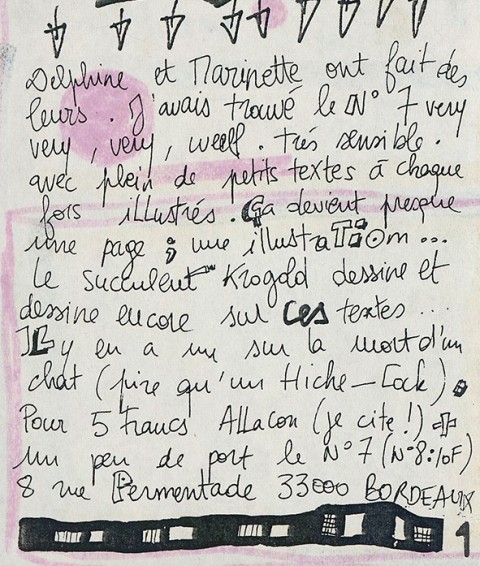 Delphine et Marinette ont fait des
leurs. J'avais trouvé le N° 7 very
very, very, weell. très sensible.
avec plein de petits textes à chaque
fois illustrés. Ça devient presque
une page ; une illustraTiOn ...
Le succulent Krogold dessine et
dessine encore sur ces textes ...
IL y en a un sur la mort d'un
chat (pire qu'un Hiche-Cock).
Pour 5 francs Allacon (je cite!) +
un peu de port le N°7 (N°8:10F)
8 rue Permentade 33000 BORDEAUX
1